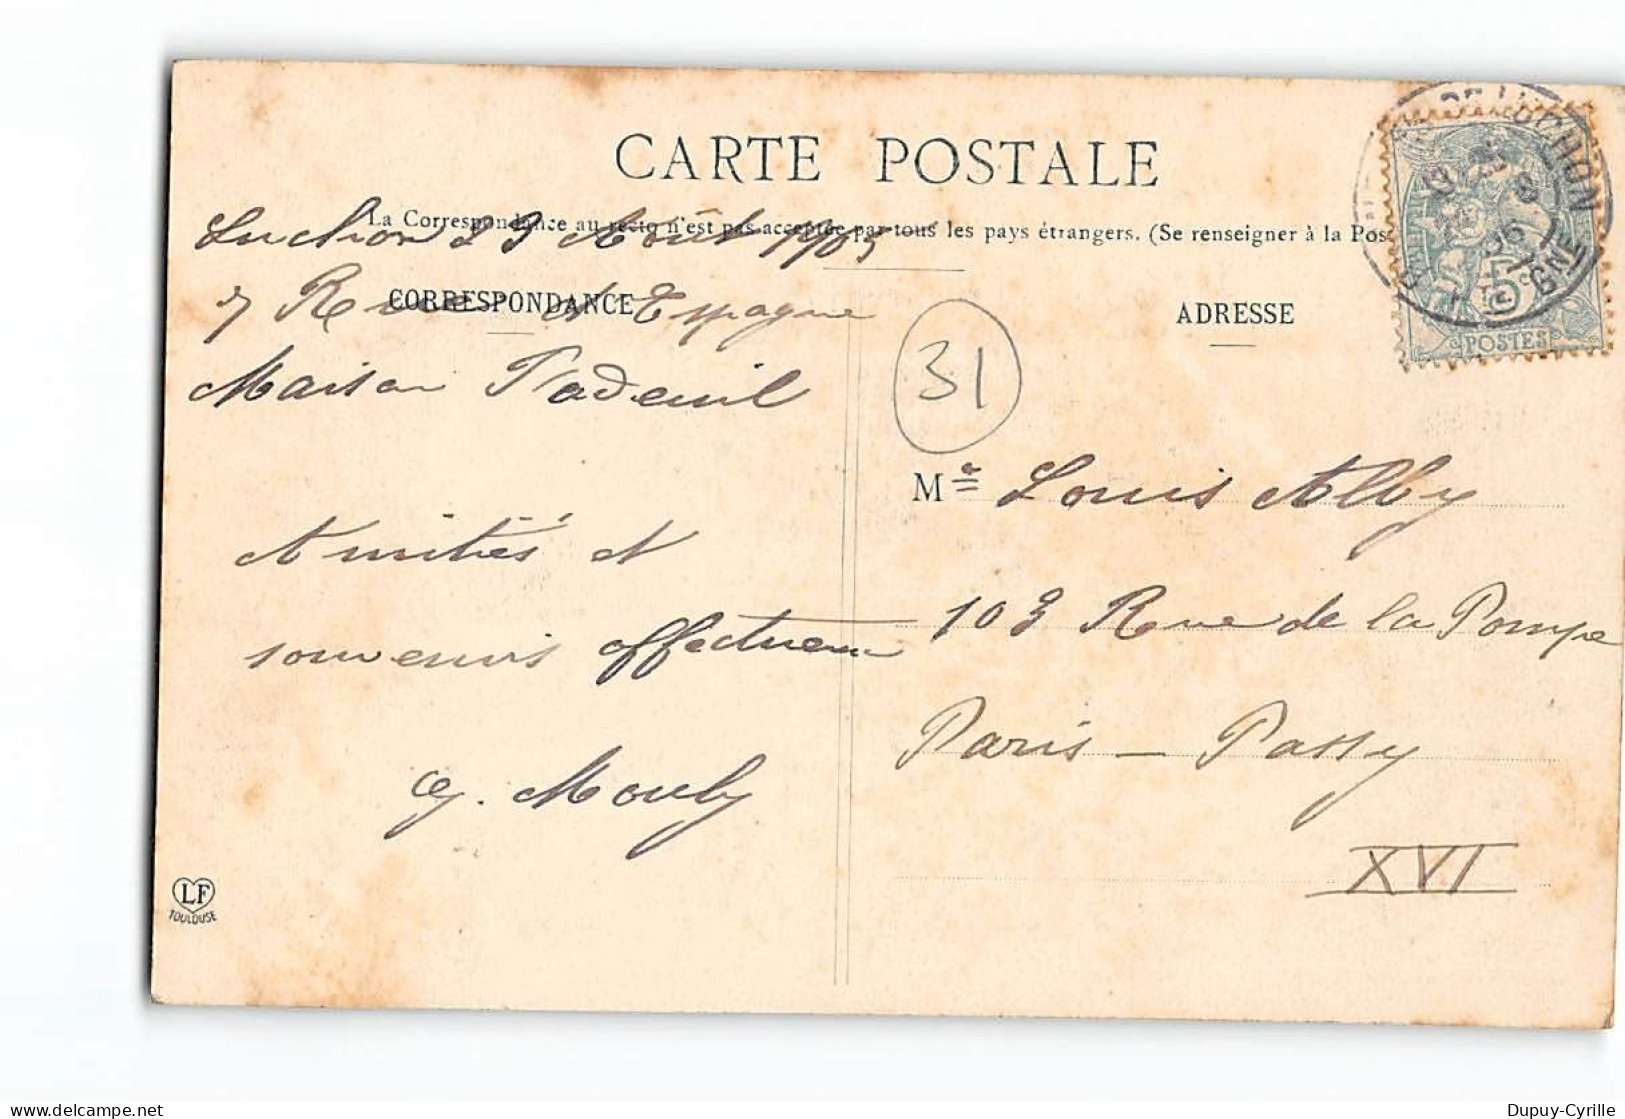 CARTE POSTALE
La Correspondance au recto n'est pas acceptée par tous les pays étrangers. (Se renseigner à la Pos
Luchon 23 Août 1905
CORRESPONDANCE
7 Rue d'Espagne
Maison Tadeuil
Amitiés et
souvenirs affectueux
G. Mouly
LF
TOULOUSE
31
ADRESSE
5c
POSTES
DE LUCHON
GNE
Mr Louis Alby
103 Rue de la Pompe
Paris - Passy
XVI
Dupuy-Cyrille